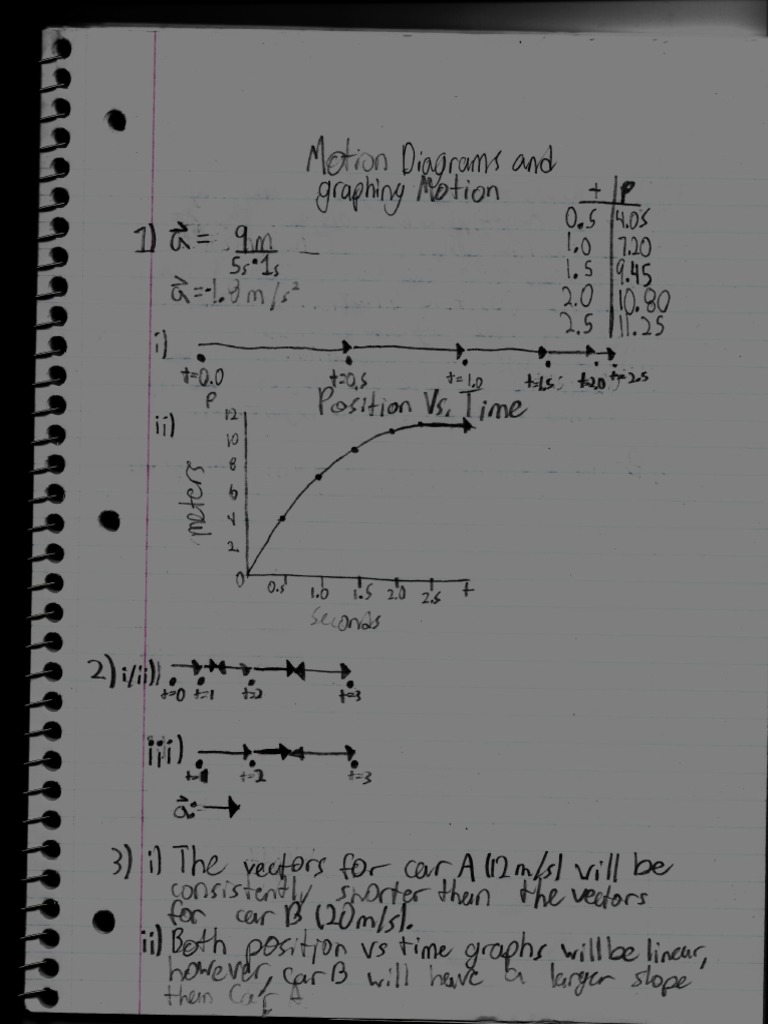 Motion Diagrams and
graphing Motion
t | P
0.5 | 4.05
1.0 | 7.20
1.5 | 9.45
2.0 | 10.80
2.5 | 11.25
1) a⃗ = 9m
5s·1s
a⃗ = -1.8 m/s²
i)
t=0.0 t=0.5 t=1.0 t=1.5 t=2.0 t=2.5
Position Vs. Time
ii)
P
12
10
8
6
4
2
0
meters
0.5 1.0 1.5 2.0 2.5 t
seconds
2) i/ii)
t=0 t=1 t=2 t=3
iii)
t=1 t=2 t=3
a⃗:
3) i) The vectors for car A (12m/s) will be
consistently shorter than the vectors
for car B (20m/s).
ii) Both position vs time graphs will be linear,
however, car B will have a larger slope
then Car A